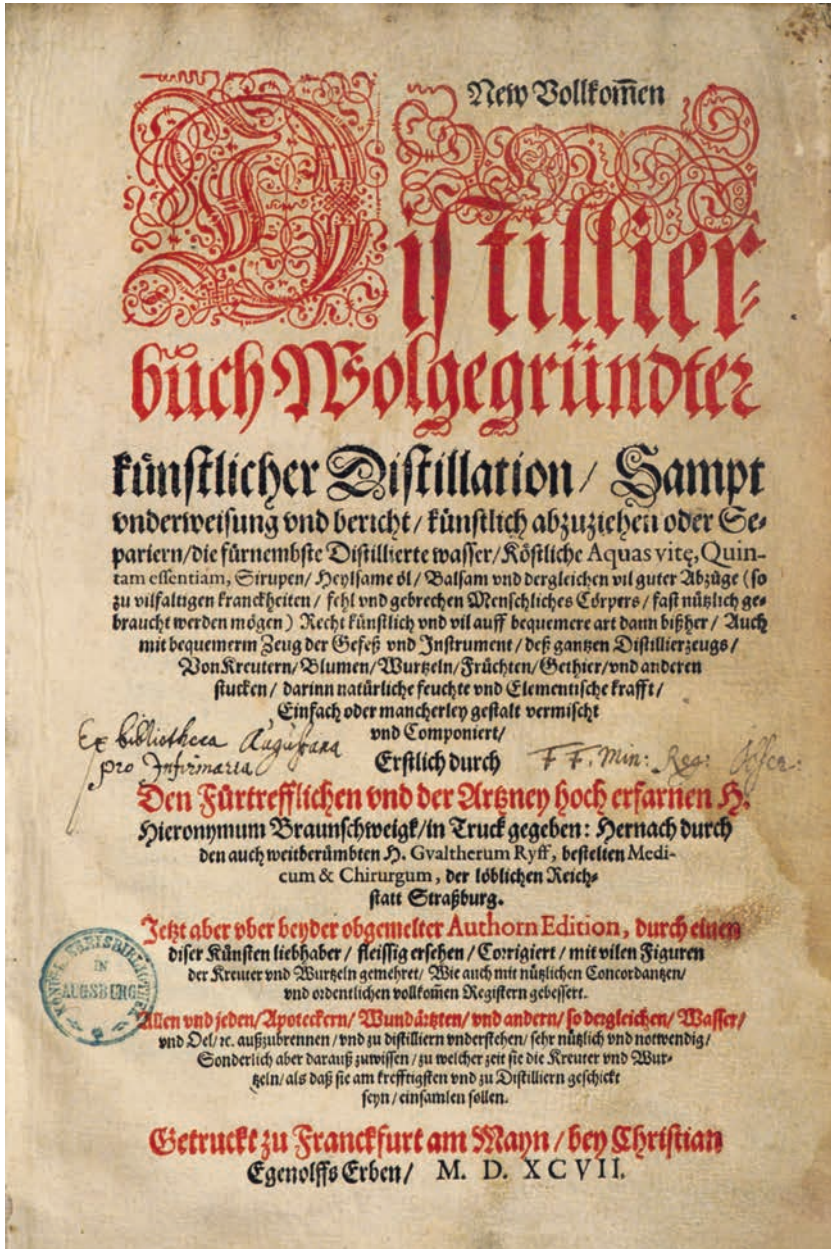 New Vollkom̃en
Distillier-
bůch Wolgegründter
künstlicher Distillation / Sampt
vnderweisung vnd bericht / künstlich abzuziehen oder Se-
pariern / die fürnembste Distillierte wasser / Köstliche Aquas vitę, Quin-
tam essentiam, Sirupen / Heylsame öl / Balsam vnd dergleichen vil guter Abzüge (so
zu vilfaltigen kranckheiten / fehl vnd gebrechen Menschliches Cörpers / fast nützlich ge-
braucht werden mögen) Recht künstlich vnd vil auff bequemere art dann bißher / Auch
mit bequemerm Zeug der Gefeß vnd Instrument / deß gantzen Distillierzeugs /
Von Kreutern / Blumen / Wurtzeln / Früchten / Gethier / vnd anderen
stucken / darinn natürliche feuchte vnd Elementische krafft /
Einfach oder mancherley gestalt vermischt
vnd Componiert /
Ex bibliotheca Augustana
pro Infirmaria
Erstlich durch
F F. Min: Reg:
Den Fürtrefflichen vnd der Artzney hoch erfarnen H.
Hieronymum Braunschweigk / in Truck gegeben: Hernach durch
den auch weitberümbten H. Gvaltherum Ryff, bestelten Medi-
cum & Chirurgum, der löblichen Reich-
statt Straßburg.
Jetzt aber vber beyder obgemelter Authorn Edition, durch einen
diser Künsten liebhaber / fleissig ersehen / Corrigiert / mit vilen Figuren
der Kreuter vnd Wurtzeln gemehret / Wie auch mit nützlichen Concordantzen /
vnd ordentlichen vollkom̃en Registern gebessert.
IN
AUGSBURG
Allen vnd jeden / Apoteckern / Wundärtzten / vnd andern / so dergleichen / Wasser /
vnd Oel / ꝛc. außzubrennen / vnd zu distilliern vnderstehen / sehr nützlich vnd notwendig /
Sonderlich aber darauß zuwissen / zu welcher zeit sie die Kreuter vnd Wur-
tzeln / als daß sie am krefftigsten vnd zu Distilliern geschickt
seyn / einsamlen sollen.
Getruckt zu Franckfurt am Mayn / bey Christian
Egenolffs Erben / M. D. XCVII.